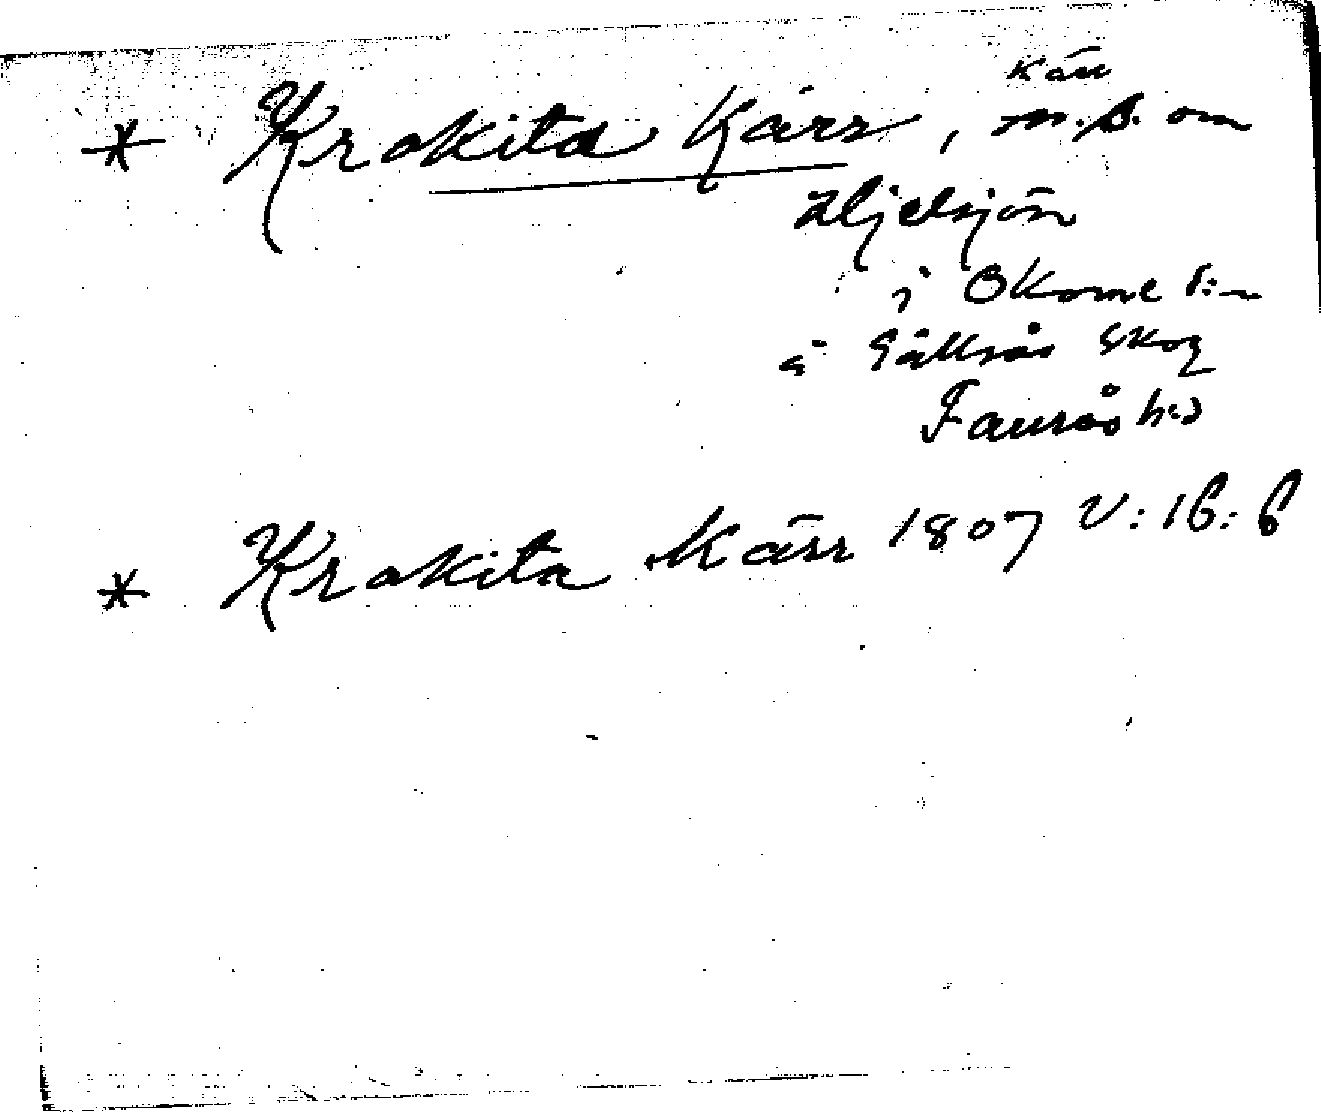 kärr
* Krokita Kärr, n.S. om
Äljelsjön
i Okome s:n
å Gällsås skog
Faurås h:d
* Krokita Kärr 1807 V:16:6